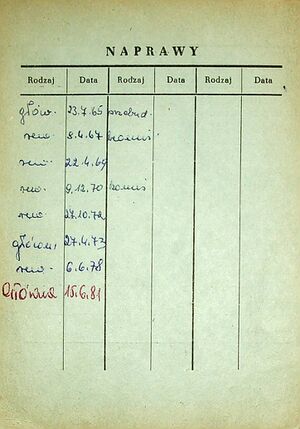 NAPRAWY
Rodzaj Data Rodzaj Data Rodzaj Data
głów. 23.7.65
rew. 8.4.67
rew. 22.4.69
rew. 9.12.70
rew. 27.10.72
główna 27.4.73
rew. 6.6.78
Główna 15.6.81